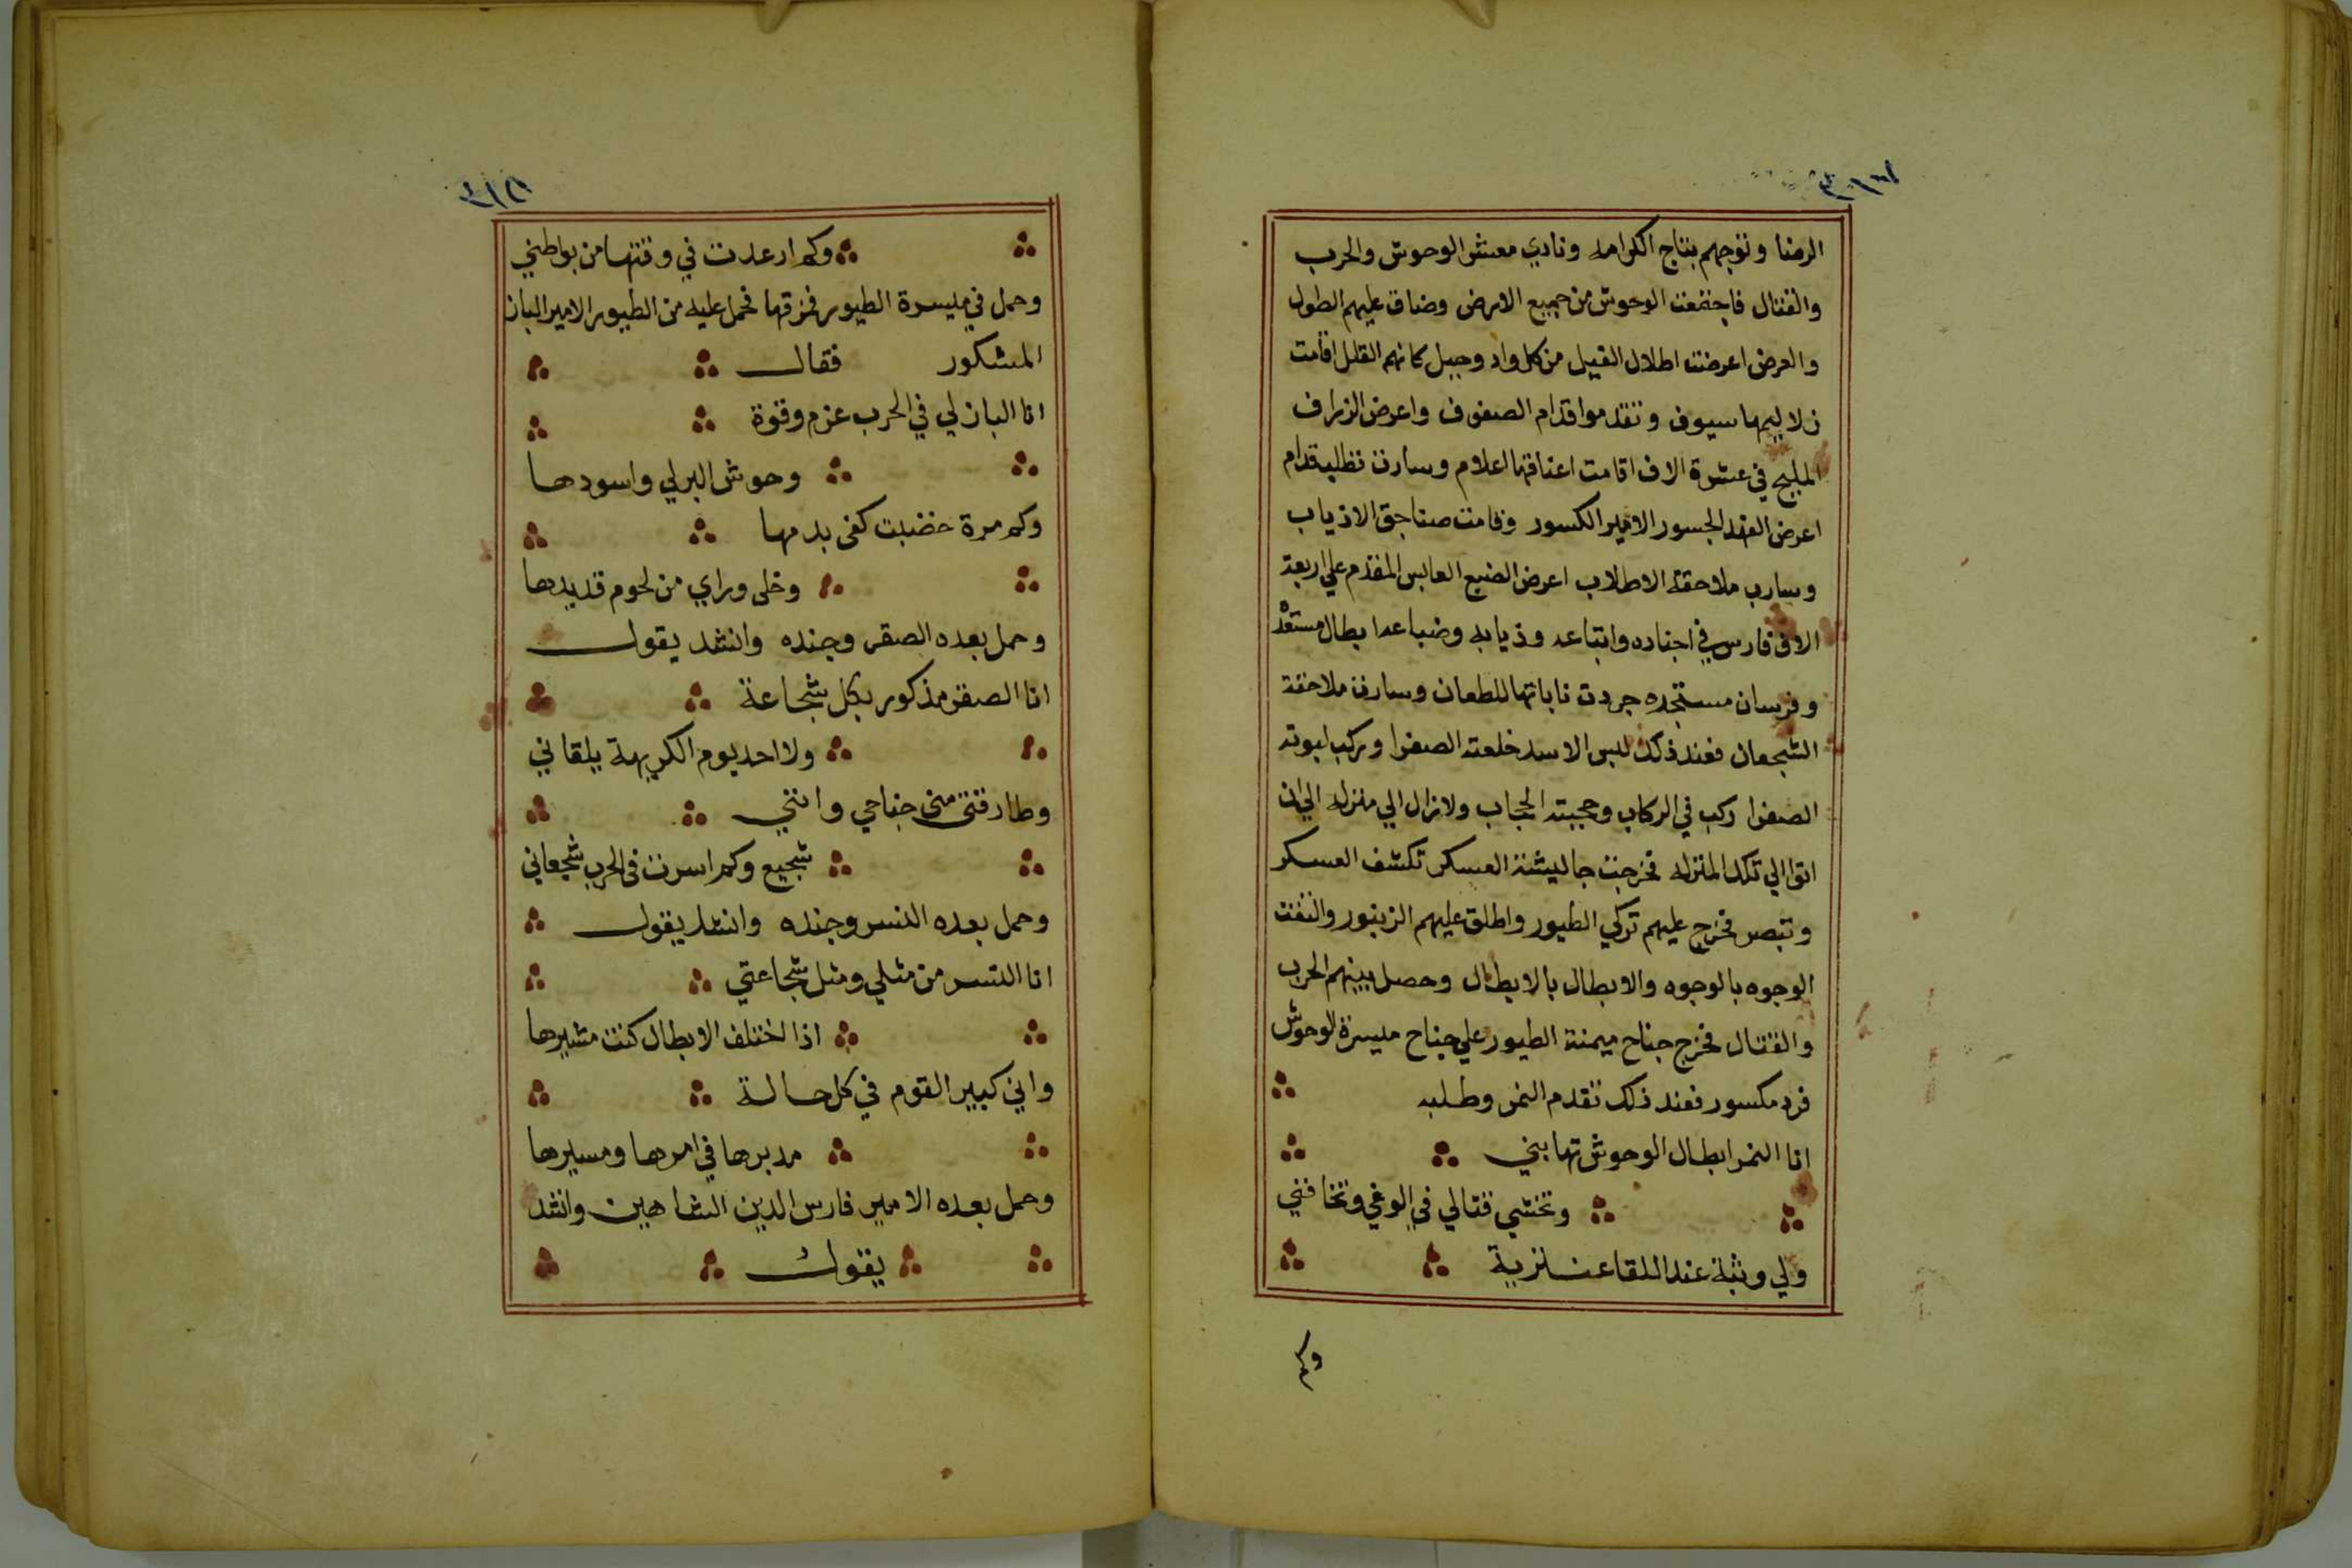 الرضا وتوجهم بتاج الكرامه ونادي معشر الوحوش والحرب
والقتال فاجتمعت الوحوش من جميع الارض وضاق عليهم الطول
والعرض اعرضت اطلال الفيل من كل واد وجبل كانهم القلل اقامت
زلاليمها سيوف وتقدموا قدام الصفوف واعرض الزراف
المليح في عشرة الاف اقامت اعناقها اعلام وسارت تظليه قدام
اعرض الفهد الجسور الامير الكسور وقامت صناجق الاذياب
وسارب ملاحقة الاطلاب اعرض الضبع العابس المقدم علي اربعة
الاف فارس في اجناده واتباعه وذيابه وضباعه ابطال مستعدة
وفرسان مستنجده جردت ناباتها للطعان وسارت ملاحقة
الشجعان فعند ذلك لبس الاسد خلعته الصفرا وركب لبوته
الصفرا ركب في الركاب وحجبته الحجاب ولازال الي منزله الي ان
اتوا الي تلك المنزله فخرجت جاليشة العسكر تكشف العسكر
وتبصر فخرج عليهم تركي الطيور واطلق عليهم الزينور والتفت
الوجوه بالوجوه والابطال بالابطال وحصل بينهم الحرب
والقتال فخرج جناح ميمنة الطيور علي جناح مليسرة الوحوش
فرد مكسور فعند ذلك تقدم النمر وطلبه
انا النمر ابطال الوحوش تهابني
وتخشي قتالي في الوغي وتخافني
ولي وثبة عند اللقا عنتزية
وكم
وكم ارعدت في وقتها من بواطني
وحمل في مليسرة الطيور فمزقها فحمل عليه من الطيور الامير الباز
المشكور فقال
انا الباز لي في الحرب عزم وقوة
وحوش البر لي واسودها
وكم مرة خضبت كفى بدمها
وخلى وراي من لحوم قديدها
وحمل بعده الصقر وجنده وانشد يقول
انا الصقر مذكور بكل شجاعة
ولا احد يوم الكريهة يلقاني
وطار قتى منى جناحي وانني
شجيع وكم اسرت فى الحرب شجعاني
وحمل بعده النسر وجنده وانشد يقول
انا النسر من مثلي ومثل شجاعتي
اذا اختلف الابطال كنت مشيرها
واني كبير القوم في كل حالة
مدبرها في امرها ومسيرها
وحمل بعده الامير فارس الدين الشاهين وانشد
يقول